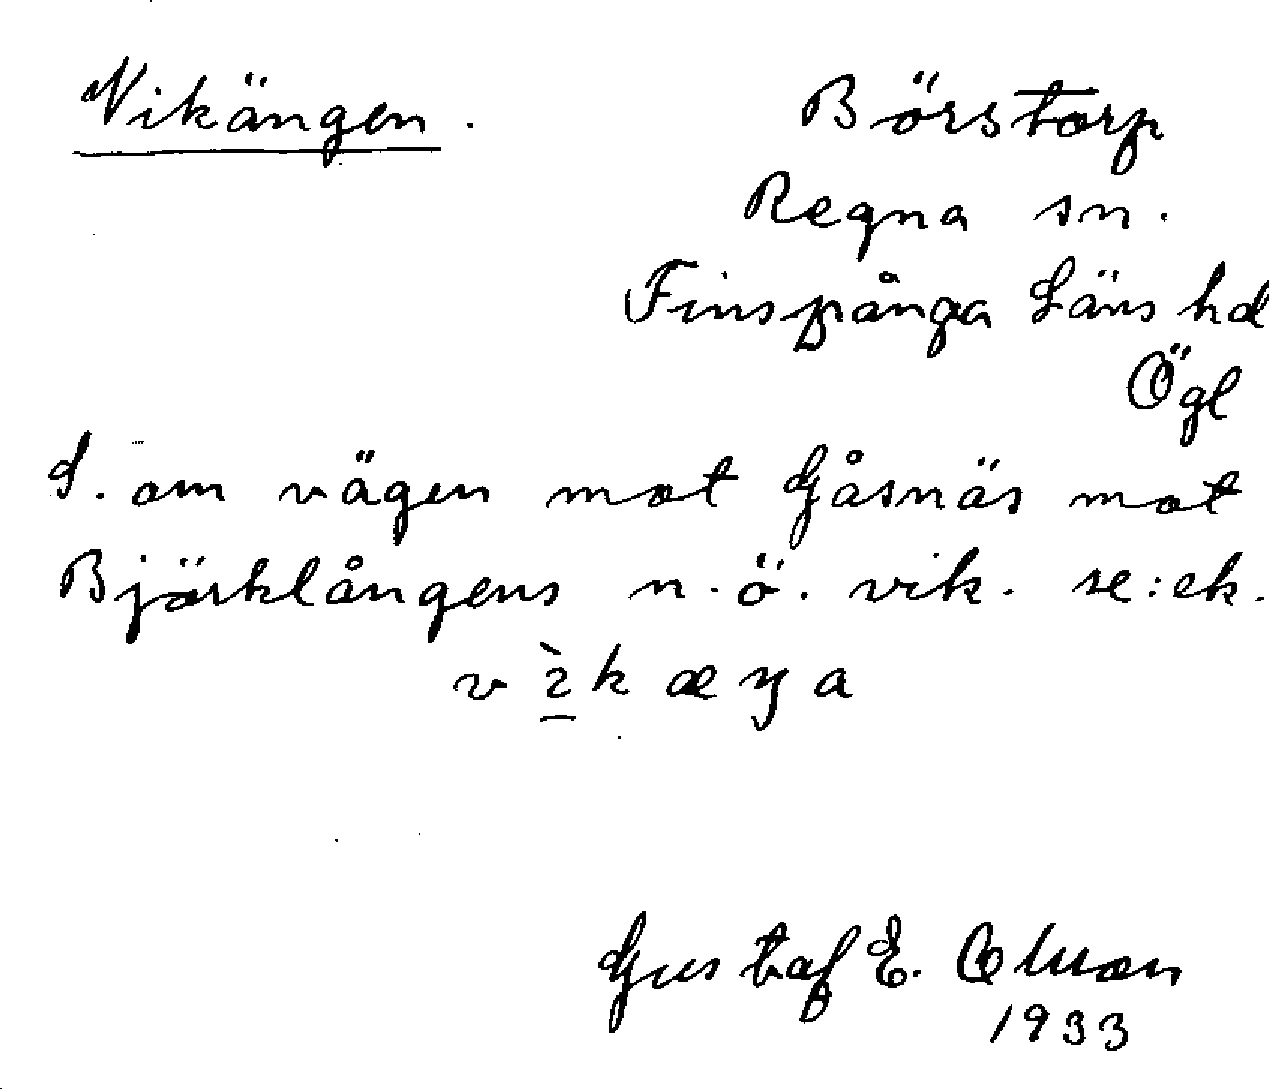 Vikängen.
Börstorp
Regna sn.
Finspånga Läns hd
Ögl
S. om vägen mot Gåsnäs mot
Björklångens n.ö. vik. se: ek.
v ì k æ ŋ a
Gustaf E. Olson
1933